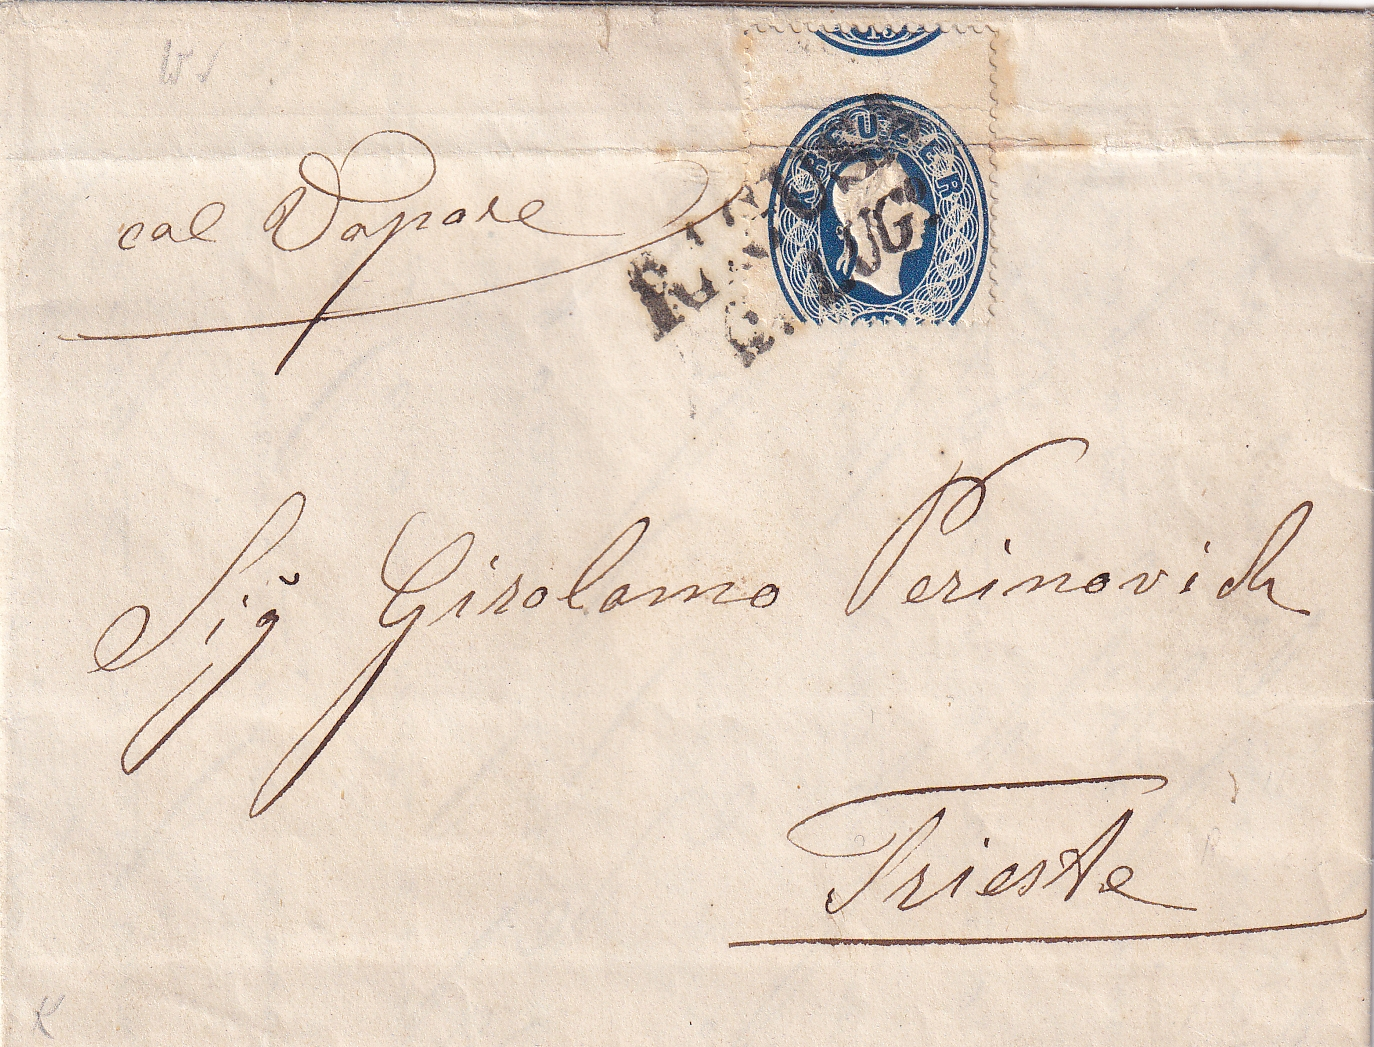 15
KREUZER
col Vapore
LUG°
Sig Girolamo Perinovich
Trieste